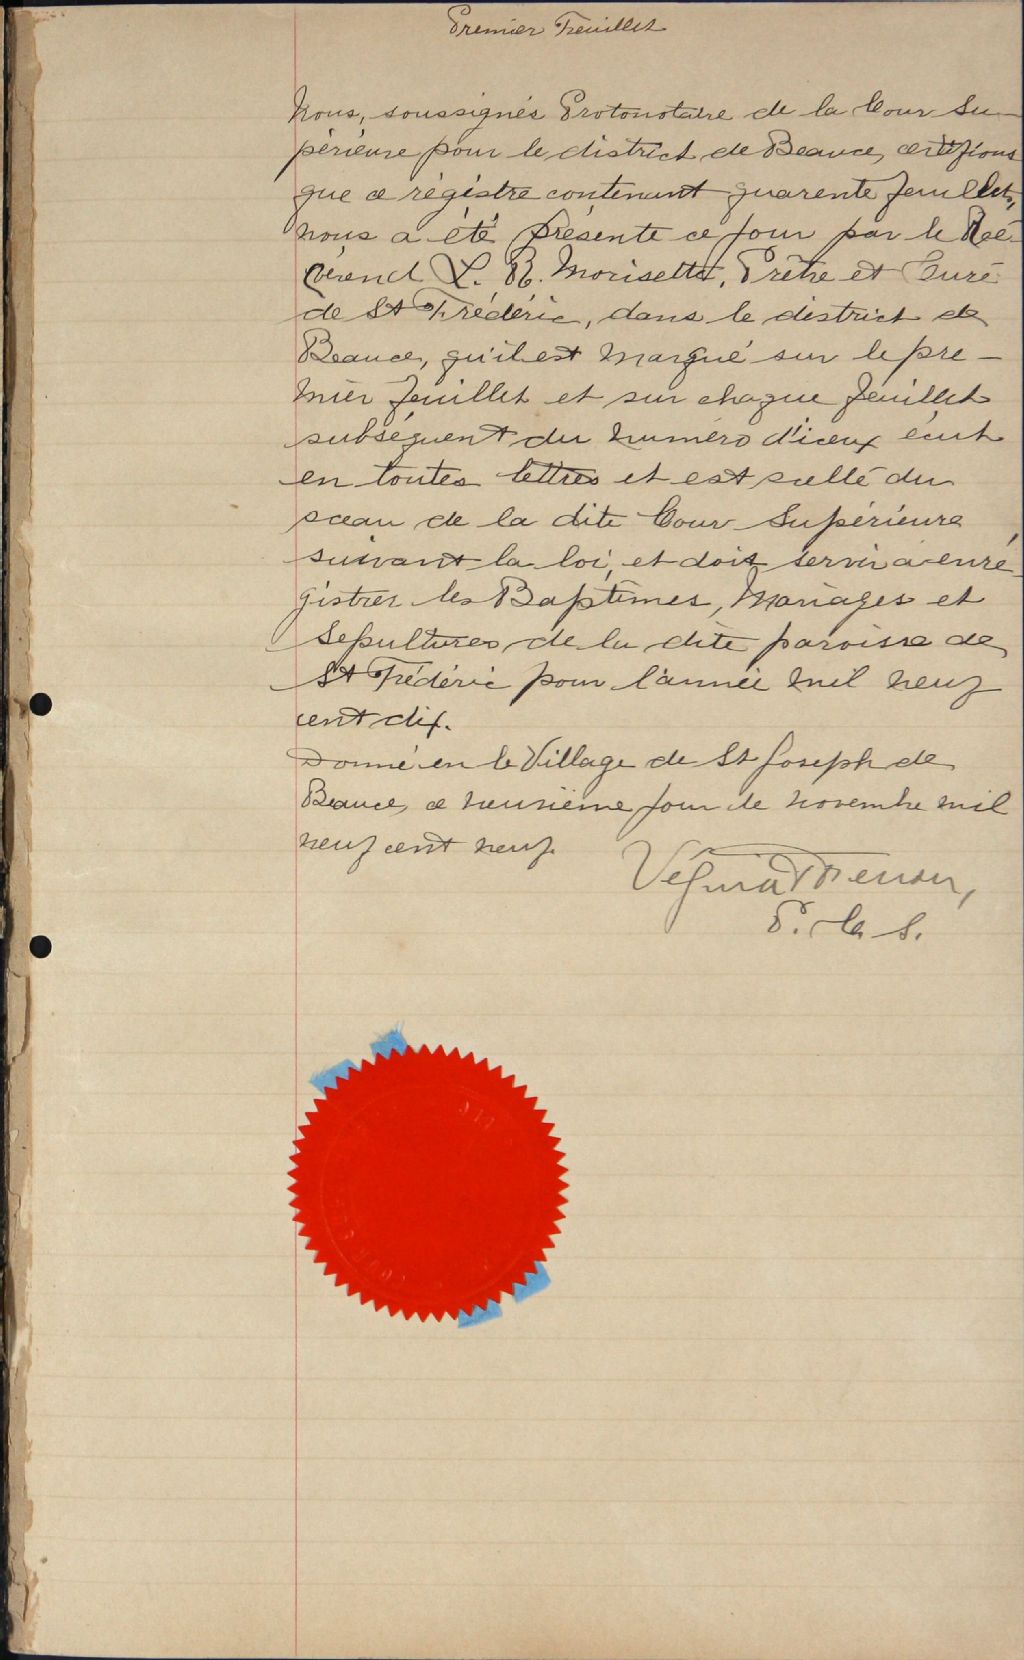 Premier Feuillet
Nous, soussignés Protonotaire de la Cour Su-
périeure pour le district de Beauce, certifions
que ce régistre contenant quarente feuillets,
nous a été présente ce jour par le Ré-
vérend L. R. Morisette, Prêtre et Curé
de St Frédéric, dans le district de
Beauce, qu'il est marqué sur le pre-
mier feuillet et sur chaque feuillet
subséquent du numéro d'iceux écrit
en toutes lettres et est scellé du
sceau de la dite Cour Supérieure
suivant la loi, et doit servir à enré-
gistrer les Baptêmes, Mariages et
Sepultures de la dite paroisse de
St Frédéric pour l'année mil neuf
cent dix.
Donné en le Village de St Joseph de
Beauce, ce neuvième jour de novembre mil
neuf cent neuf.
Vézina &
P. C. S.